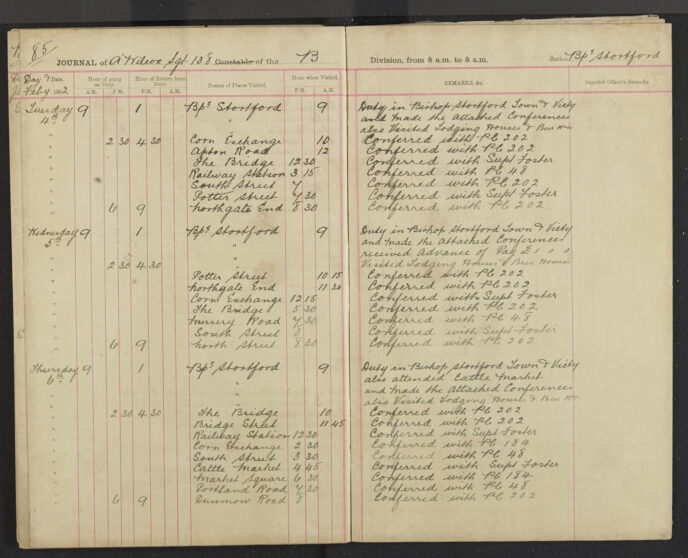 85
JOURNAL of A Wilcox Sgt 138 Constable of the B Division, from 8 a.m. to 8 a.m. Station Bps Stortford
Day & Date. Hour of going on Duty. Hour of Return from Duty Names of Places Visited. Hour when Visited. REMARKS, &c. Superior Officer's Remarks.
Feby 1902. A.M. P.M. P.M. A.M. P.M. A.M.
Tuesday 9 1 Bps Stortford 9 Duty in Bishop Stortford Town & Victy
4th and made the attached Conferences
also Visited Lodging Houses & Beer
2 30 4 30 Corn Exchange 10 Conferred with Pc 202
Apton Road 12 Conferred with Pc 202
The Bridge 12 30 Conferred with Supt Foster
Railway Station 3 15 Conferred with Pc 48
South Street 7 Conferred with Pc 202
Potter Street 7 30 Conferred with Supt Foster
6 9 Northgate End 8 30 Conferred with Pc 202
Wednesday 9 1 Bps Stortford 9 Duty in Bishop Stortford Town & Victy
5th " and made the Attached Conferences
" received Advance of Pay £1 0 0
2 30 4 30 Visited Lodging Houses & Beer Houses
Potter Street 10 15 Conferred with Pc 202
Northgate End 11 30 Conferred with Pc 202
Corn Exchange 12 15 Conferred with Supt Foster
The Bridge 5 30 Conferred with Pc 202
Nursery Road 7 30 Conferred with Pc 48
South Street 8 Conferred with Supt Foster
6 9 North Street 8 30 Conferred with Pc 202
Thursday 9 1 Bps Stortford 9 Duty in Bishop Stortford Town & Victy
6th " also attended Cattle Market
" and made the Attached Conferences
" also Visited Lodging Houses & Beer
2 30 4 30 The Bridge 10 Conferred with Pc 202
Bridge Street 11 45 Conferred with Pc 202
Railway Station 12 30 Conferred with Supt Foster
Corn Exchange 2 30 Conferred with Pc 184
South Street 3 30 Conferred with Pc 48
Cattle Market 4 45 Conferred with Supt Foster
Market Square 6 30 Conferred with Pc 184
Portland Road 7 30 Conferred with Pc 48
6 9 Dunmow Road 8 Conferred with Pc 202